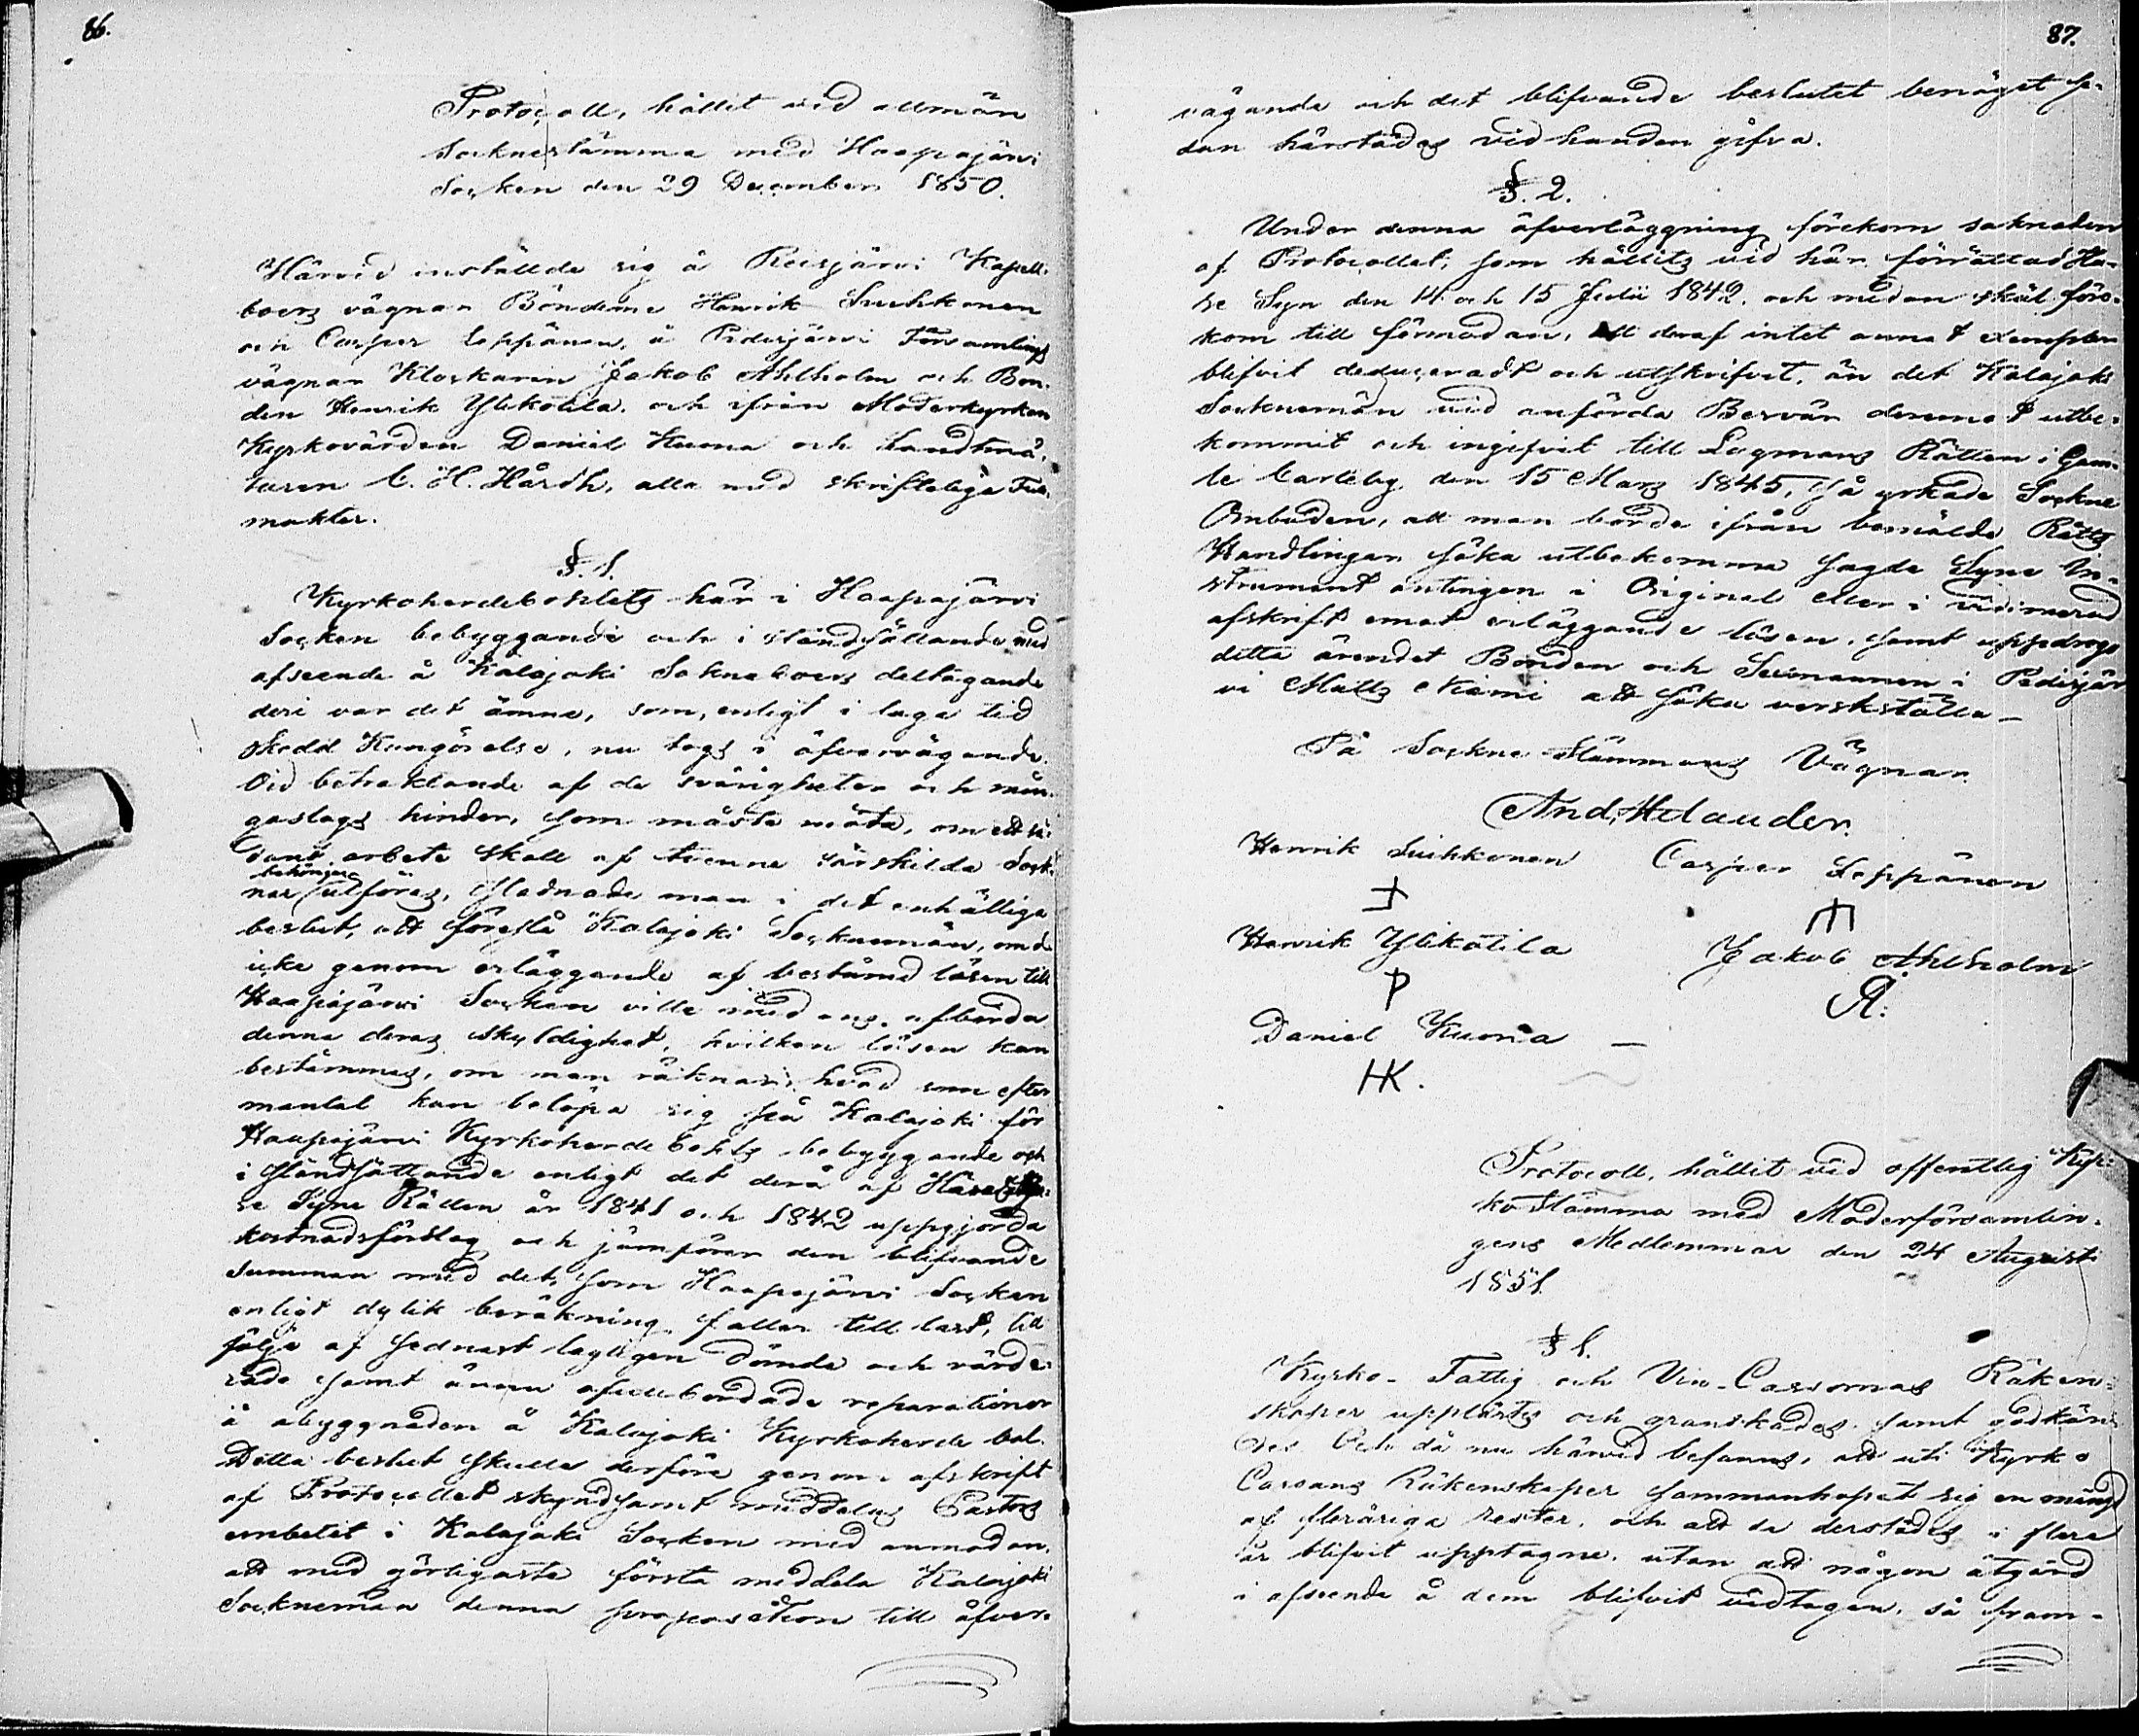 86.
Protocoll, hållit vid allmän
Socknestämma med Haapajärvi
Socken den 29 December 1850.
Härvid inställde sig å Reisjärvi Kapell-
boers vägnar Bönderne Henrik Suihkonen
och Casper Leppänen, å Pidisjärvi Församlings
vägnar Klockaren Jakob Ahlholm och Bon-
den Henrik Ylikotila och ifrån Moderkyrkan
Kyrkovärden Daniel Kuona och Landtmä-
taren C. H. Hårdh, alla med skrifteliga Full-
makter.
§. 1.
Kyrkoherdebohlets här i Haapajärvi
Socken bebyggande och i ståndsättande med
afseende å Kalajoki Sokneboers deltagande
deri var det ämne, som, enligt i laga tid
skedd Kungörelse, nu togs i öfvervägande.
Vid betraktande af de svårigheter och mån-
gaslags hinder, som måste möta, om ett så-
dant arbete skall af tvenne särskilda Sock-
behörigen
nar utföras, stadnade man i det enhälliga
beslut, att föreslå Kalajoki Socknemän, om de
icke genom erläggande af bestämd lösen till
Haapajärvi Socken ville med ens afbörda
denna deras skyldighet, hvilken lösen kan
bestämmas, om man räknar, hvad som efter
mantal kan belöpa sig på Kalajoki för
Haapajärvi Kyrkoherde bohls bebyggande och
i ståndsättande enligt det derå af
se Syne Rätten år 1841 och 1842 uppgjorda
kostnadsförslag och jämförer den blifvande
summan med det, som Haapajärvi Socken
enligt dylik beräkning faller till last, till
följe af sednast lagligen dömda och värde-
rade samt ännu oafbördade reparationer
å åbyggnaden å Kalajoki Kyrkoherde bol.
Detta beslut skulle derföre genom afskrift
af Protocollet skyndsamt meddelas Pastors
embetet i Kalajoki Socken med anmodan,
att med görligaste första meddela Kalajoki
Socknemän denna proposition till öfver-
87.
vägande och det blifvande beslutet benäget se-
dan härstädes vid handen gifva.
§. 2.
Under denna öfverläggning förekom saknaden
af Protocollet, som hållits vid här förrättad Hu-
se Syn den 14 och 15 Julii 1842, och medan skäl före-
kom till förmodan, att deraf intet annat exemplar
blifvit deduceradt och utskrifvit, än det Kalajoki
Socknemän vid anförda Besvär deremot utbe-
kommit och ingifvit till Lagmans Rätten i Gam-
le Carleby den 15 Mars 1845, så yrkade Sockne
Ombuden, att man borde ifrån bemälde Rätts
Handlingar söka utbekomma sagde Syne In-
strument antingen i Original eller i vidimerad
afskrift emot erläggande lösen, samt uppdrogs
detta ärendet Bonden och Sexmannen i Pidisjär-
vi Matts Niemi att söka verkställa –
På Sockne Stämmans Vägnar.
And. Helander.
Henrik Suihkonen Casper Leppänen
Henrik Ylikotila Jakob Ahlholm
P
Daniel Kuona –
HK.
Protocoll, hållit vid offentlig Kyr-
ko Stämma med Moderförsamlin-
gens Medlemmar den 24 Augusti
1851.
§ 1.
Kyrko- Fattig och Vin-Cassornas Räken-
skaper upplästes och granskades samt godkän-
des. Och då nu härvid befanns, att uti Kyrko
Cassans Räkenskaper sammanhopat sig en mängd
af fleråriga rester, och att de derstädes i flere
år blifvit upptagne, utan att någon åtgärd
i afseende å dem blifvit vidtagen, så fram-